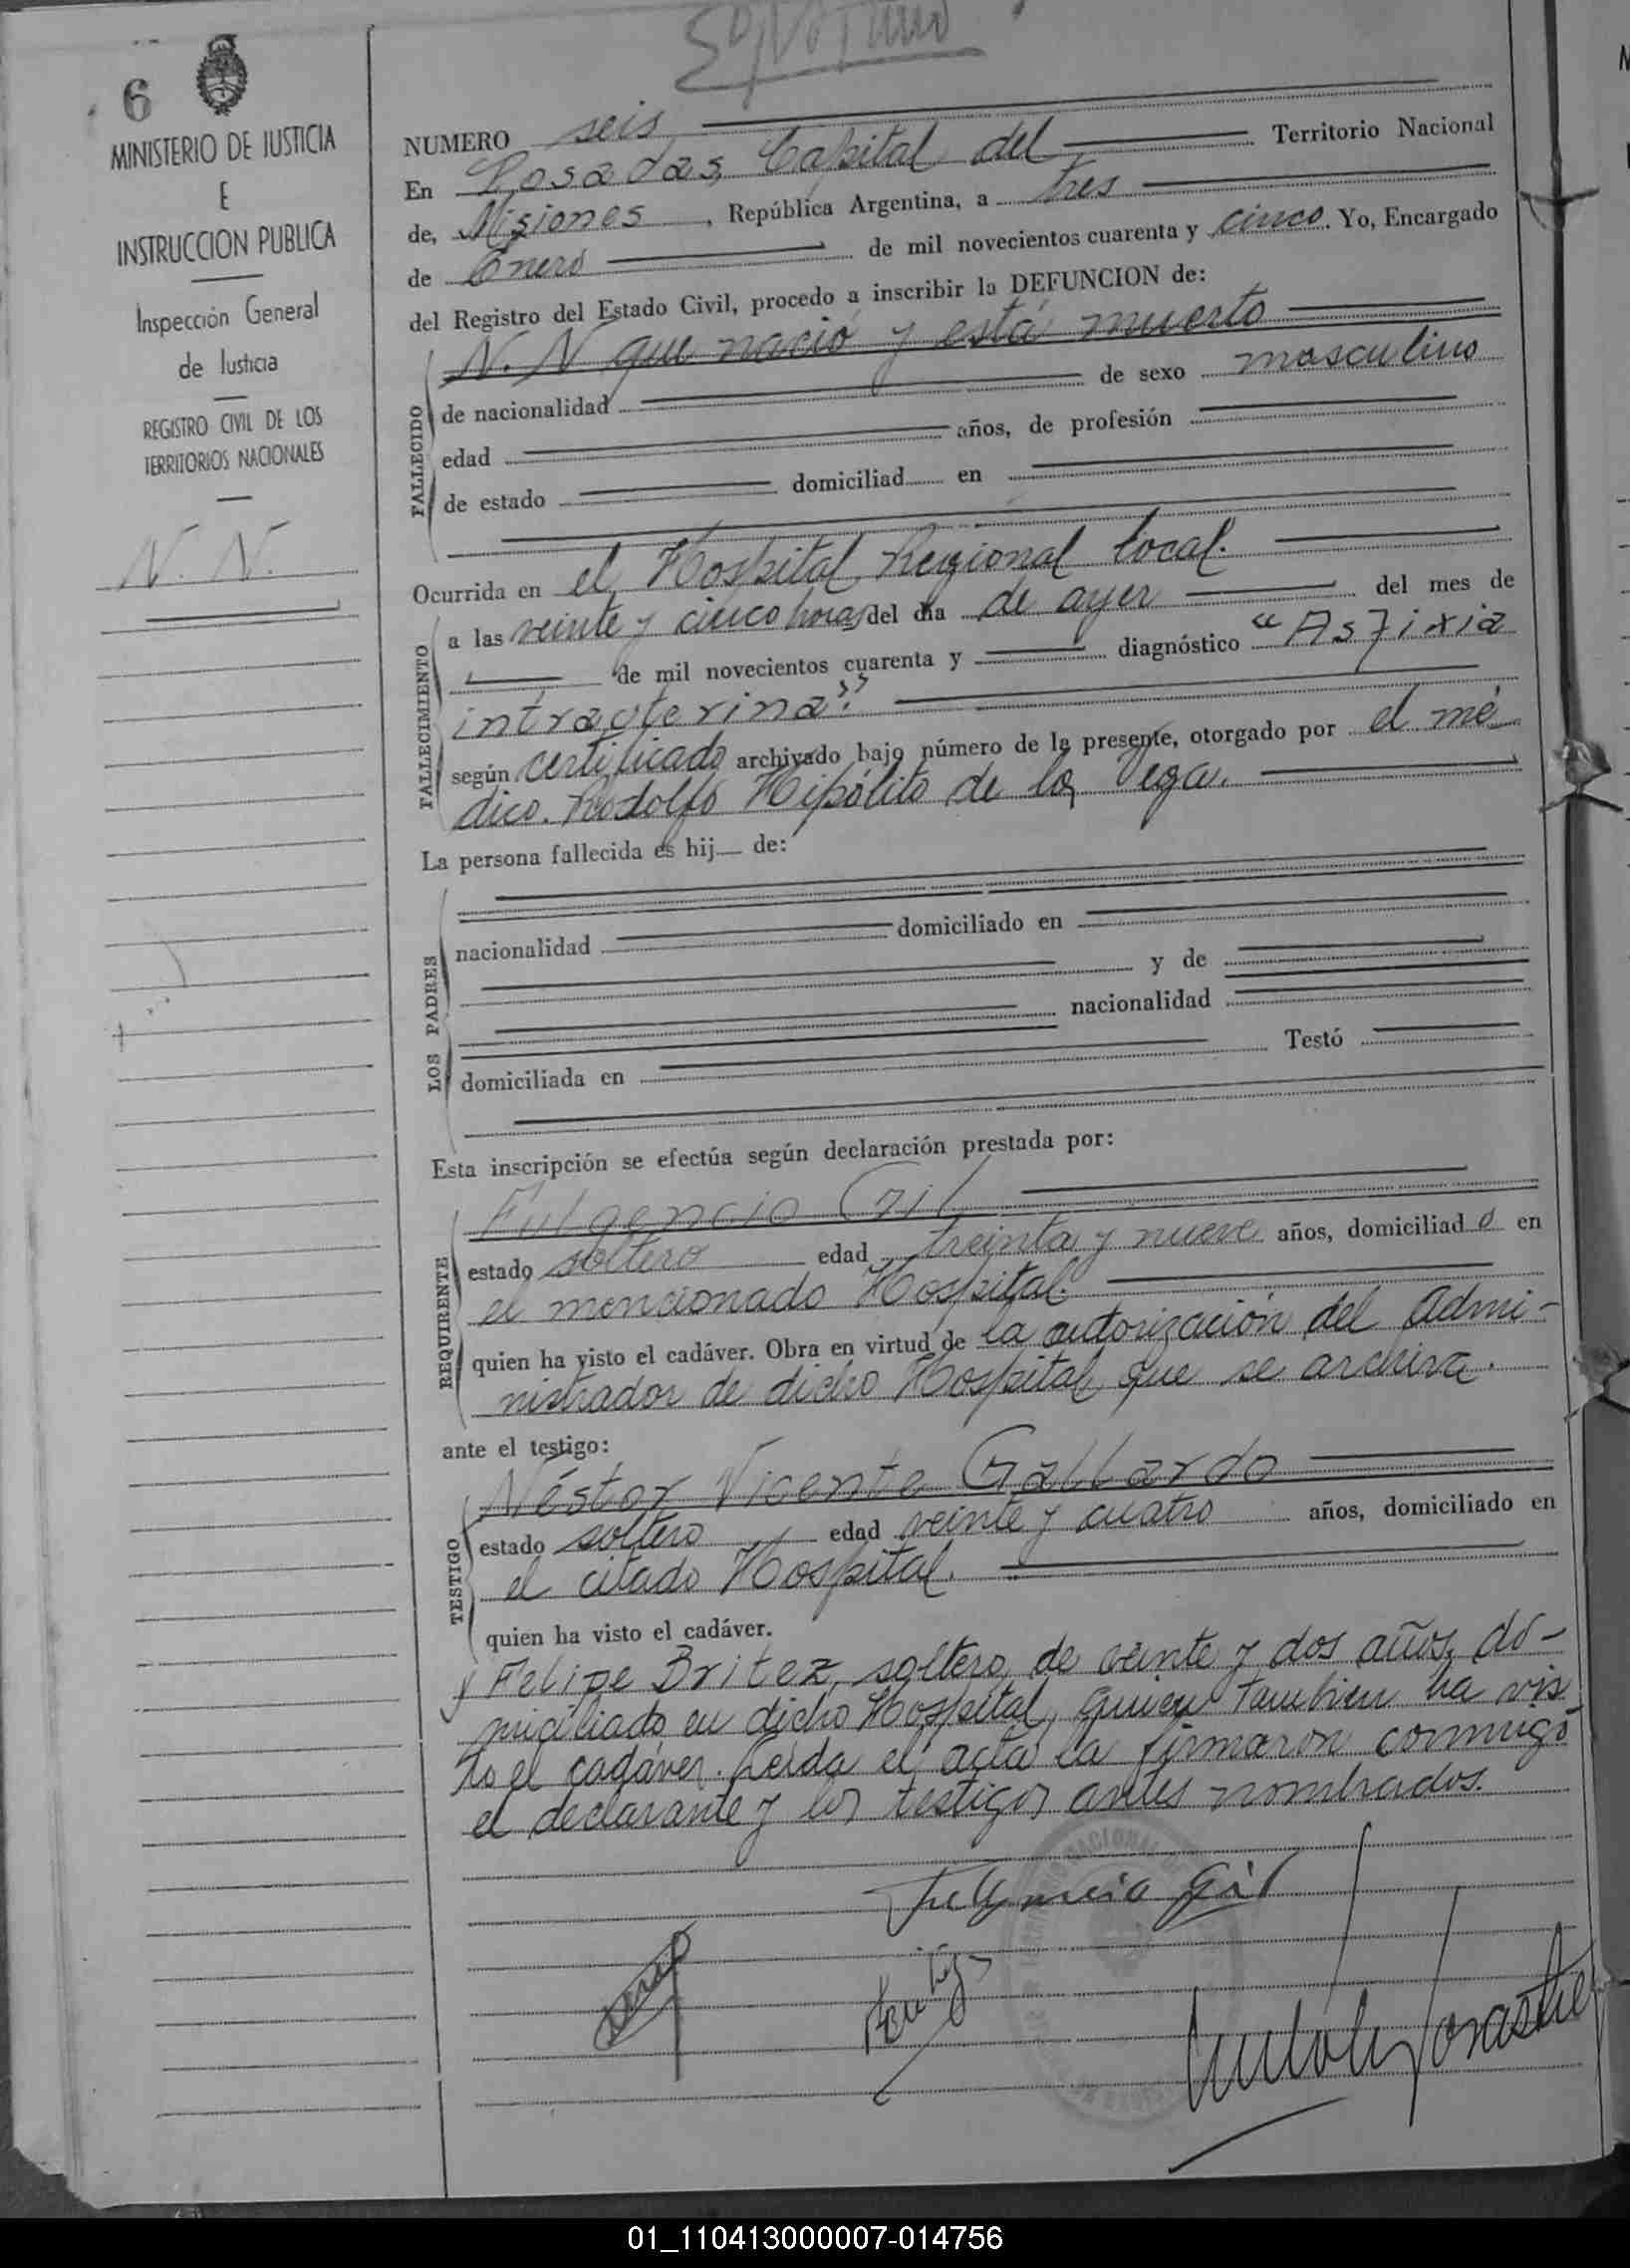 6
MINISTERIO DE JUSTICIA
E
INSTRUCCION PUBLICA
Inspección General
de Justicia
REGISTRO CIVIL DE LOS
TERRITORIOS NACIONALES
N. N.
NUMERO seis
En Posadas, Capital del Territorio Nacional
de, Misiones, República Argentina, a tres
de Enero de mil novecientos cuarenta y cinco. Yo, Encargado
del Registro del Estado Civil, procedo a inscribir la DEFUNCION de:
N. N que nació y está muerto
de nacionalidad de sexo masculino
edad años, de profesión
de estado domiciliad en
FALLECIDO
Ocurrida en el Hospital Regional local.
a las veinte y cinco horas del dia de ayer del mes de
de mil novecientos cuarenta y diagnóstico "Asfixia
intrauterina".
según certificado archivado bajo número de la presente, otorgado por el mé
dico. Rodolfo Hipólito de la Vega.
FALLECIMIENTO
La persona fallecida es hij de:
nacionalidad domiciliado en
y de
nacionalidad
domiciliada en Testó
LOS PADRES
Esta inscripción se efectúa según declaración prestada por:
Fulgencio Gil
estado soltero edad treinta y nueve años, domiciliado en
el mencionado Hospital.
quien ha visto el cadáver. Obra en virtud de la autorización del Admi-
nistrador de dicho Hospital, que se archiva.
REQUIRENTE
ante el testigo:
Néstor Vicente Gallardo
estado soltero edad veinte y cuatro años, domiciliado en
el citado Hospital.
quien ha visto el cadáver.
TESTIGO
y Felipe Britez, soltero, de veinte y dos años, do-
miciliado en dicho Hospital, quien tambien ha vis
to el cadáver. Leida el acta la firmaron conmigo
el declarante y los testigos antes nombrados.
Fulgencio Gil
01_110413000007-014756